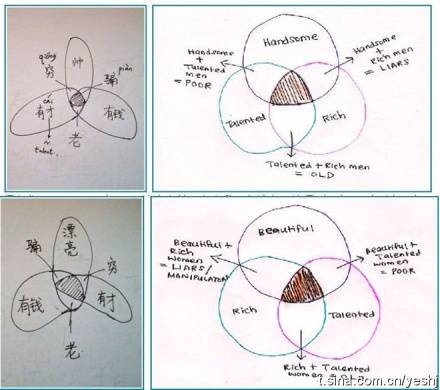 帅
qióng
穷
骗
piàn
有才
cái
有钱
老
talent.
Handsome
Handsome
+
Talented
men
= POOR
Handsome
+
Rich men
= LIARS
Talented
Rich
Talented + Rich men
= OLD
漂
亮
骗
穷
有钱
有才
老
Beautiful
Beautiful +
Rich
Women
= LIARS/
MANIPULATOR
Beautiful +
Talented
women
= POOR
Rich
Talented
Rich + Talented
women = OLD
t.sina.com.cn/yeshi